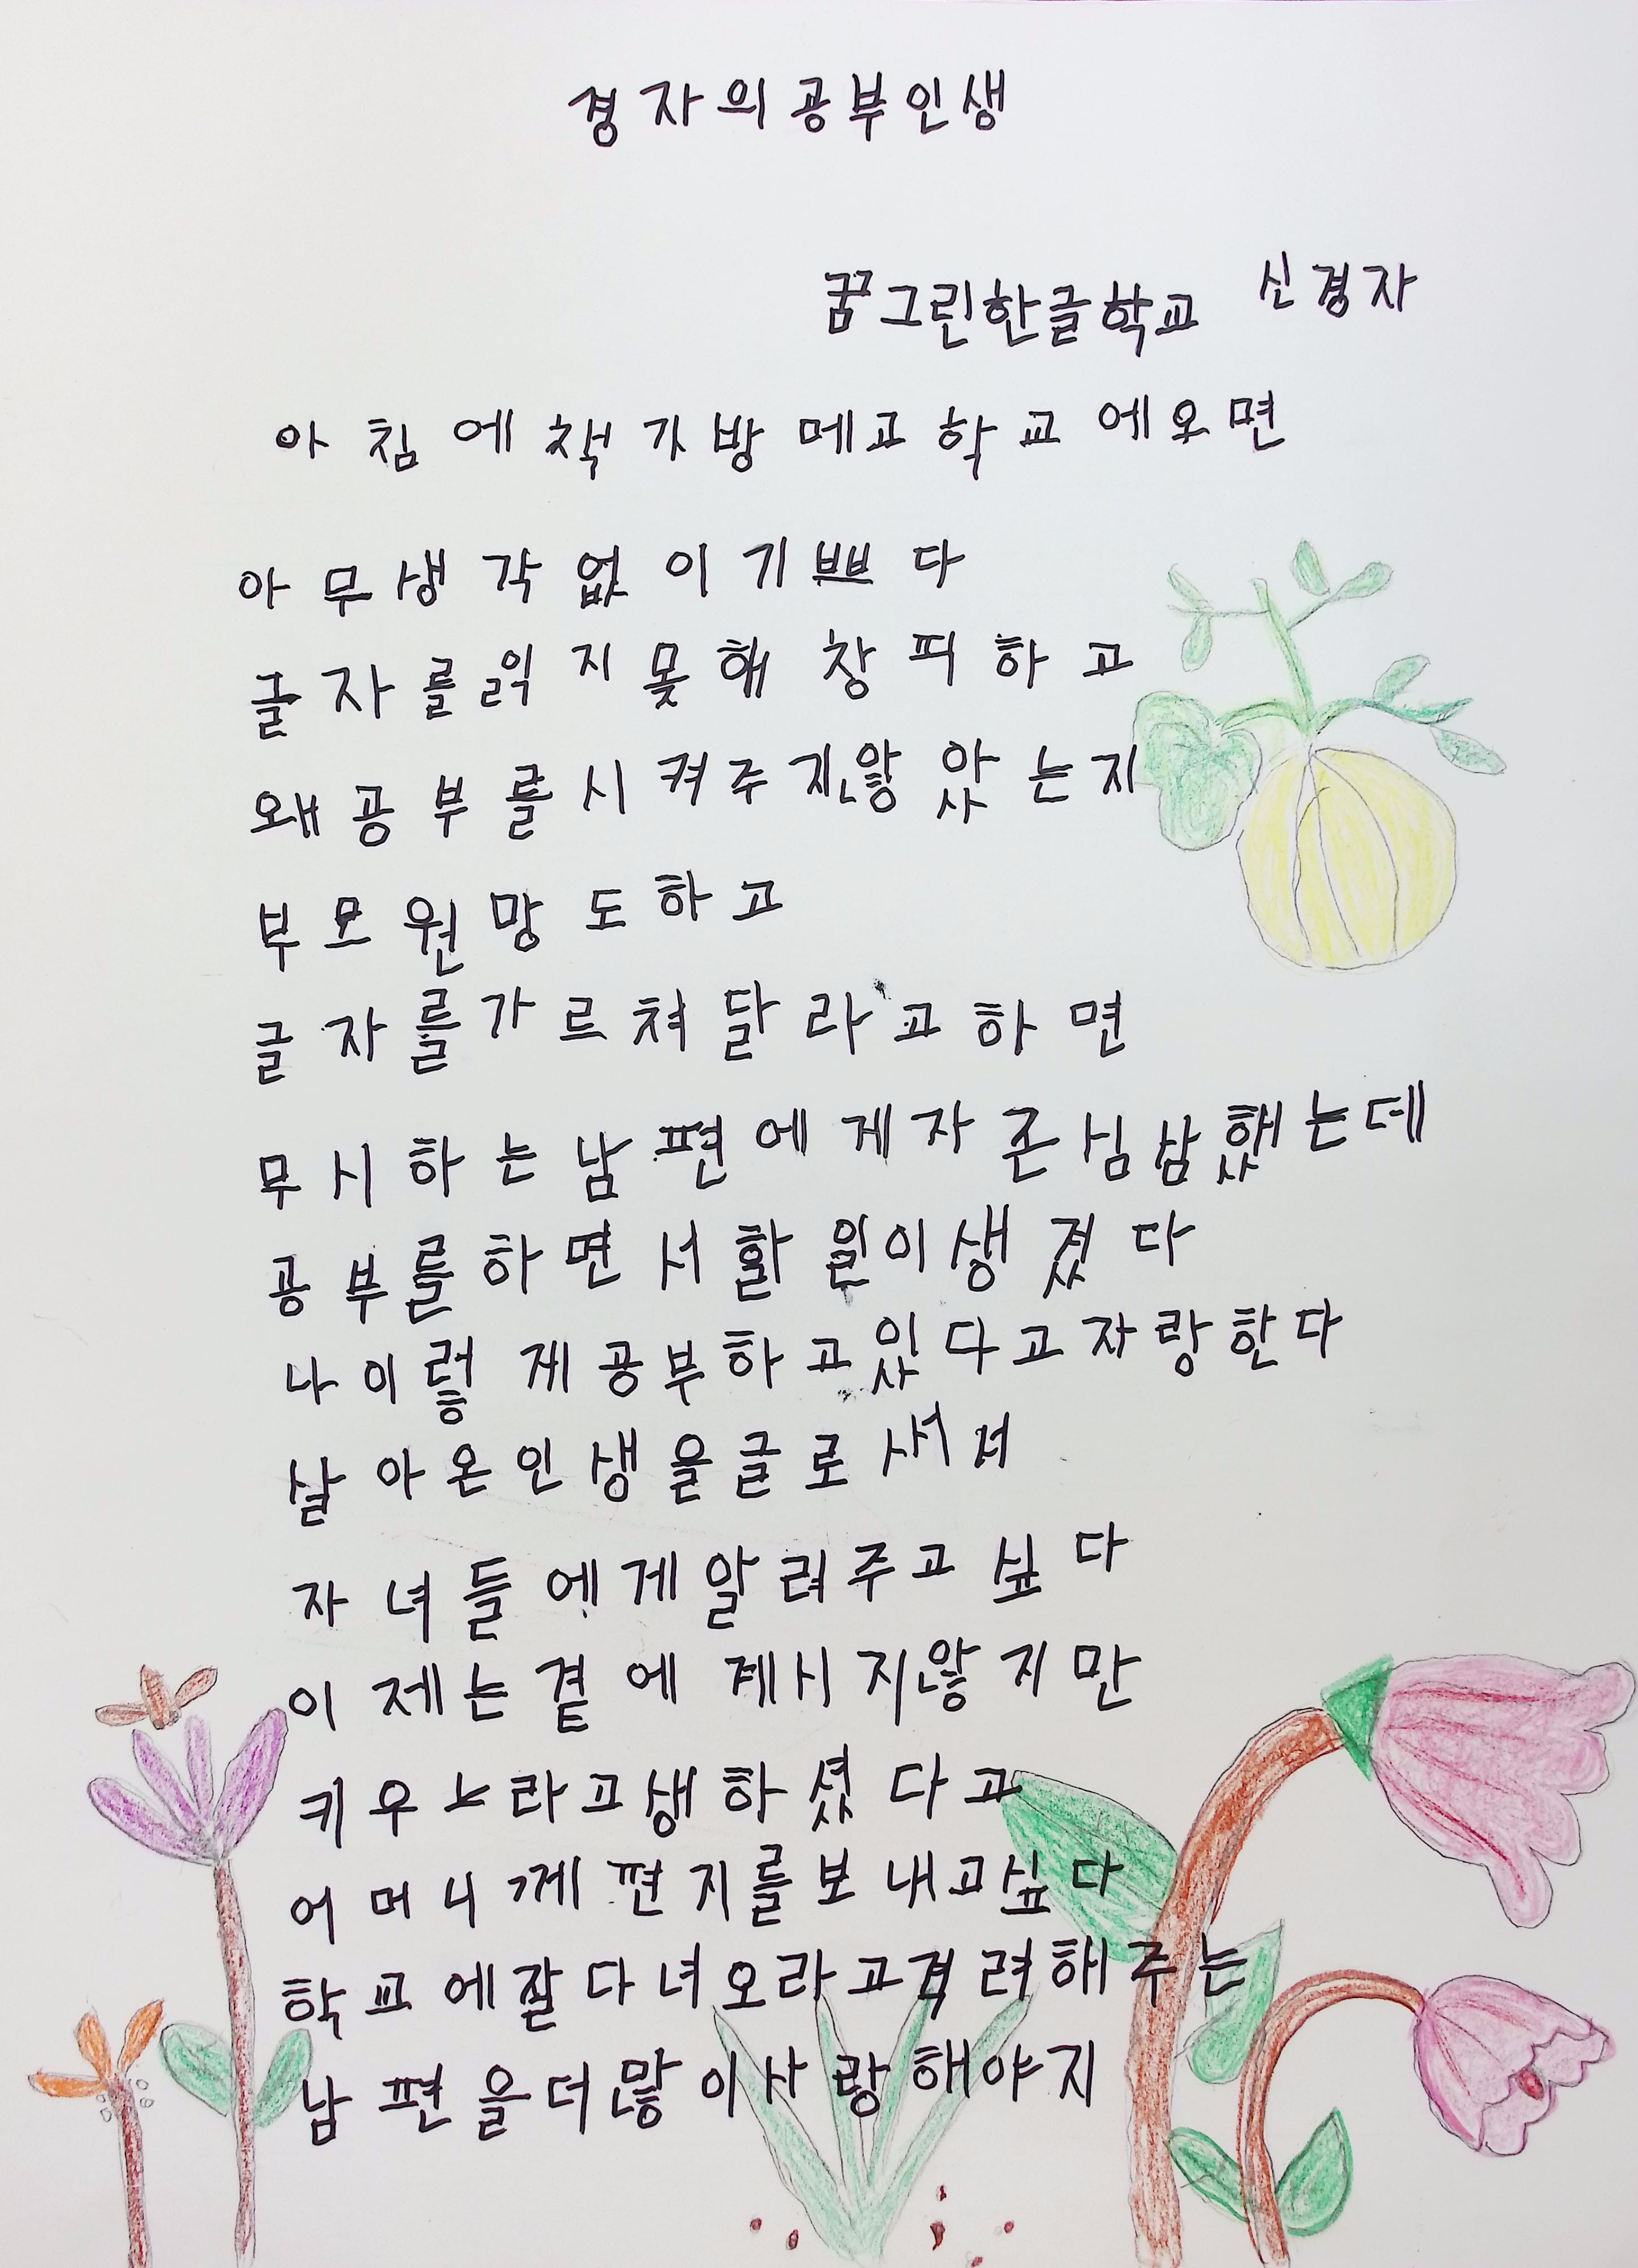 경자의 공부인생
꿈그린한글학교 신경자
아침에 책가방 메고 학교에 오면
아무생각 없이 기쁘다
글자를 읽지 못해 창피하고
왜 공부를 시켜주지않았는지
부모 원망도 하고
글자를 가르쳐 달라고 하면
무시하는 남편에게 자존심 삼했는데
공부를 하면서 활일이 생겼다
나 이렇게 공부하고 있다고 자랑한다
살아온 인생을 글로 써셔
자녀들에게 알려주고 싶다
이제는 곁에 계시지 않지만
키우느라 고생하셨다고
어머니께 편지를 보내고싶다
학교에 잘 다녀오라고 격려해주는
남편을 더 많이 사랑해야지